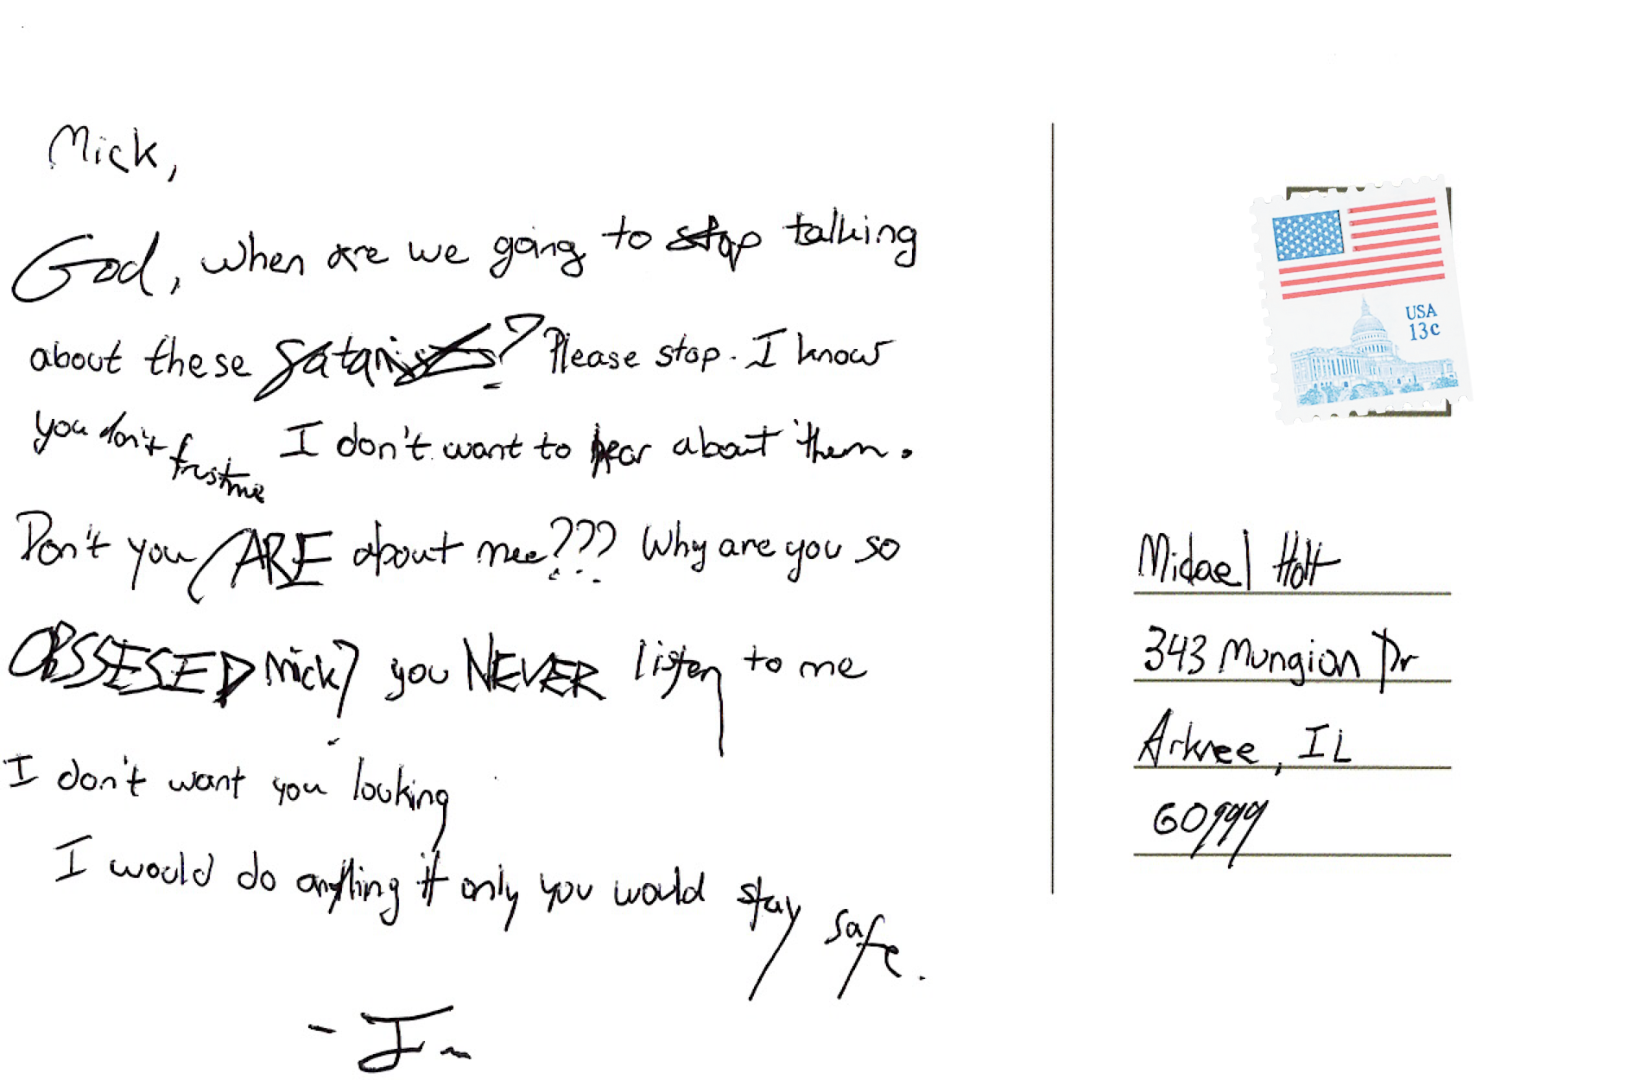 Mick,
God, when are we going to stop talking
about these satanists? Please stop. I know
you don't trust me I don't want to hear about them.
Don't you CARE about mee??? Why are you so
OBSSESED Mick? you NEVER listen to me
I don't want you looking
I would do anything if only you would stay safe.
- J
USA
13c
Michael Holt
343 Mungion Dr
Arkree, IL
60999